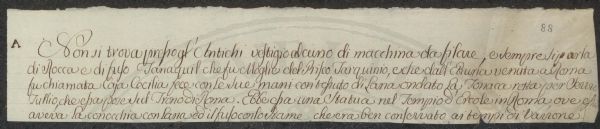 88
A Non si trova presso gl'Antichi vestigio alcuno di macchina da filare, e sempre si parla
di Rocca e di fuso Tanaquil che fu Moglie del Prisco Tarquinio, e che dall'Etruria venuta a Roma
fu chiamata Caja Cecilia fece con le sue mani contesto di Lana ondato la Tonaca retta per Servio
Tullio, che passò sul Trono di Roma. Ebbe una Statua nel Tempio d'Ercole in Roma, ove
aveva la conocchia con lana ed il fuso con stame, che era ben conservato ai tempi di Varrone